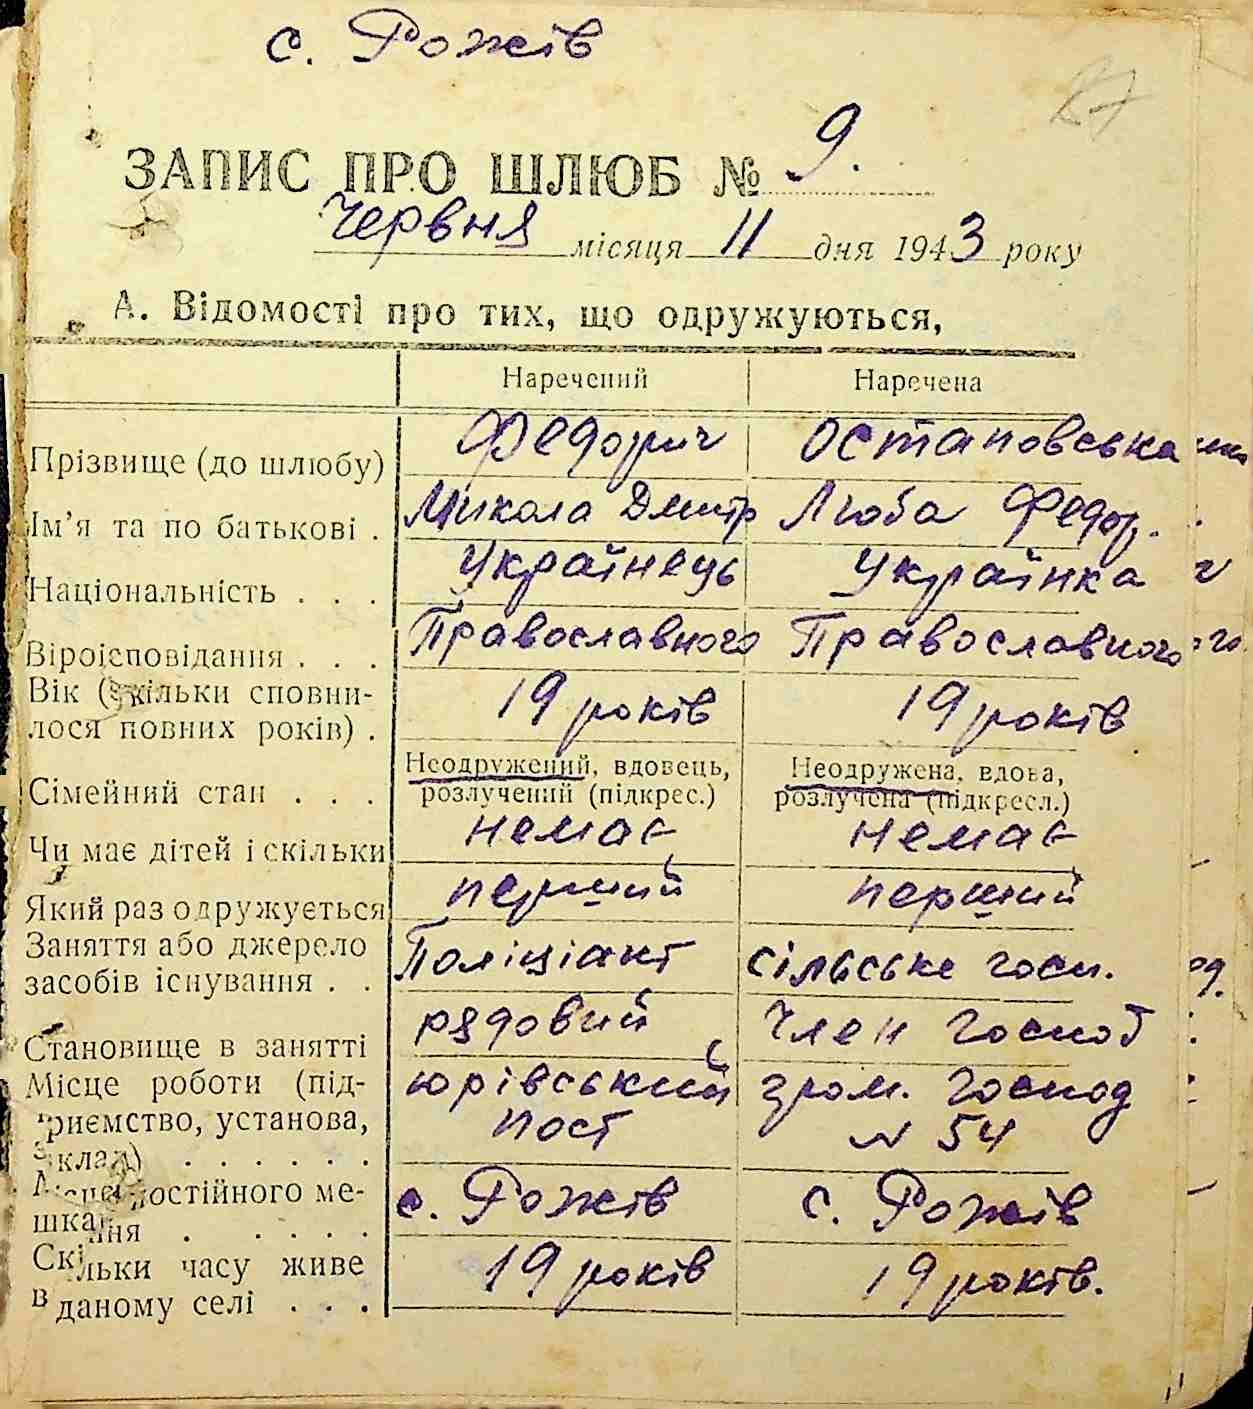 с. Рожів
87
ЗАПИС ПРО ШЛЮБ № 9.
Червня місяця 11 дня 1943 року
А. Відомості про тих, що одружуються,
Наречений Наречена
Прізвище (до шлюбу) Федорич Остаповська
Ім’я та по батькові . Микола Дмитр Люба Федор.
Національність . . . Українець Українка
Віроісповідання . . . Православного Православного
Вік (скільки сповни-
лося повних років) . 19 років 19 років
Сімейний стан . . . Неодружений, вдовець, розлучений (підкрес.) Неодружена, вдова, розлучена (підкресл.)
Чи має дітей і скільки немає немає
Який раз одружується перший перший
Заняття або джерело
засобів існування . . Поліціант сільське госп.
Становище в занятті рядовий Член господ
Місце роботи (під-
приємство, установа, юрівський пост гром. господ
заклад) . . . . . . № 54
Місце постійного ме-
шкання . . . . . с. Рожів с. Рожів
Скільки часу живе
в даному селі . . . 19 років 19 років.